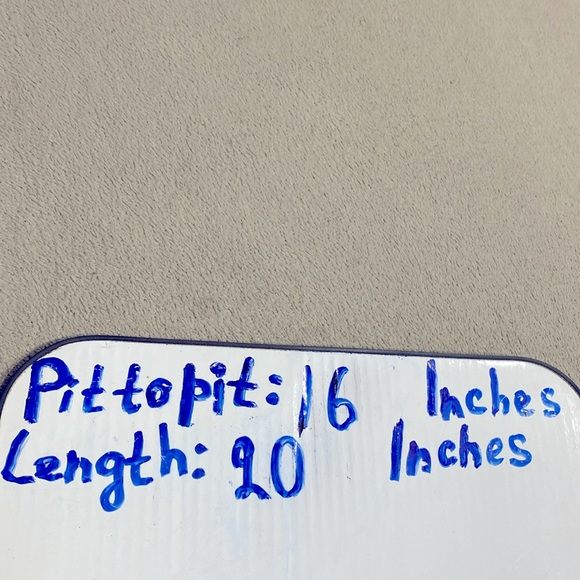 Pit to pit: 16 Inches
Length: 20 Inches